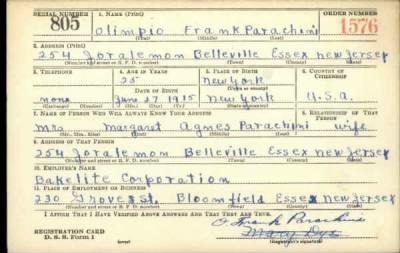 SERIAL NUMBER 1. NAME (Print) ORDER NUMBER
805 Olimpio Frank Parachini 1576
(First) (Middle) (Last)
2. ADDRESS (Print)
254 Joralemon Belleville Essex New Jersey
(Number and street or R. F. D. number) (Town) (County) (State)
3. TELEPHONE 4. AGE IN YEARS 5. PLACE OF BIRTH 6. COUNTRY OF CITIZENSHIP
25 New York
(Town or county)
none DATE OF BIRTH
June 27 1915 New York U.S.A.
(Exchange) (Number) (Mo.) (Day) (Yr.) (State or country)
7. NAME OF PERSON WHO WILL ALWAYS KNOW YOUR ADDRESS 8. RELATIONSHIP OF THAT PERSON
Mrs Margaret Agnes Parachini wife
(Mr., Mrs., Miss) (First) (Middle) (Last)
9. ADDRESS OF THAT PERSON
254 Joralemon Belleville Essex New Jersey
(Number and street or R. F. D. number) (Town) (County) (State)
10. EMPLOYER'S NAME
Bakelite Corporation
11. PLACE OF EMPLOYMENT OR BUSINESS
230 Grove St. Bloomfield Essex New Jersey
(Number and street or R. F. D. number) (Town) (County) (State)
I AFFIRM THAT I HAVE VERIFIED ABOVE ANSWERS AND THAT THEY ARE TRUE.
O. Frank Parachini
REGISTRATION CARD
D. S. S. Form 1 (over) (Registrant's signature)